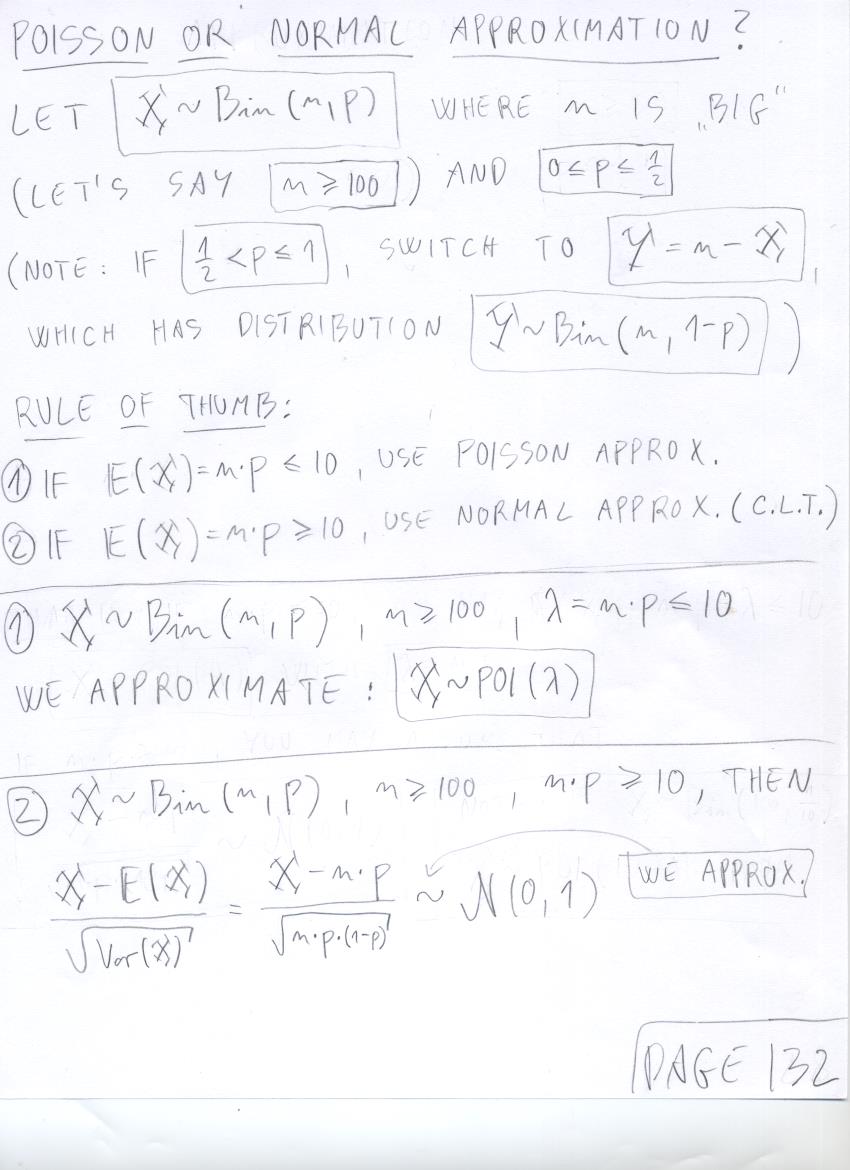 POISSON OR NORMAL APPROXIMATION?
LET X ~ Bin(n, p) WHERE n IS „BIG"
(LET'S SAY n ⩾ 100) AND 0 ≤ p ≤ 1/2
(NOTE: IF 1/2 < p ≤ 1, SWITCH TO Y = n - X,
WHICH HAS DISTRIBUTION Y ~ Bin(n, 1-p))
RULE OF THUMB:
① IF E(X) = n·p ≤ 10, USE POISSON APPROX.
② IF E(X) = n·p ⩾ 10, USE NORMAL APPROX. (C.L.T.)
① X ~ Bin(n, p), n ⩾ 100, λ = n·p ≤ 10
WE APPROXIMATE: X ~ POI(λ)
② X ~ Bin(n, p), n ⩾ 100, n·p ⩾ 10, THEN
(X - E(X)) / √Var(X) = (X - n·p) / √n·p·(1-p) ~ N(0, 1) WE APPROX.
PAGE 132